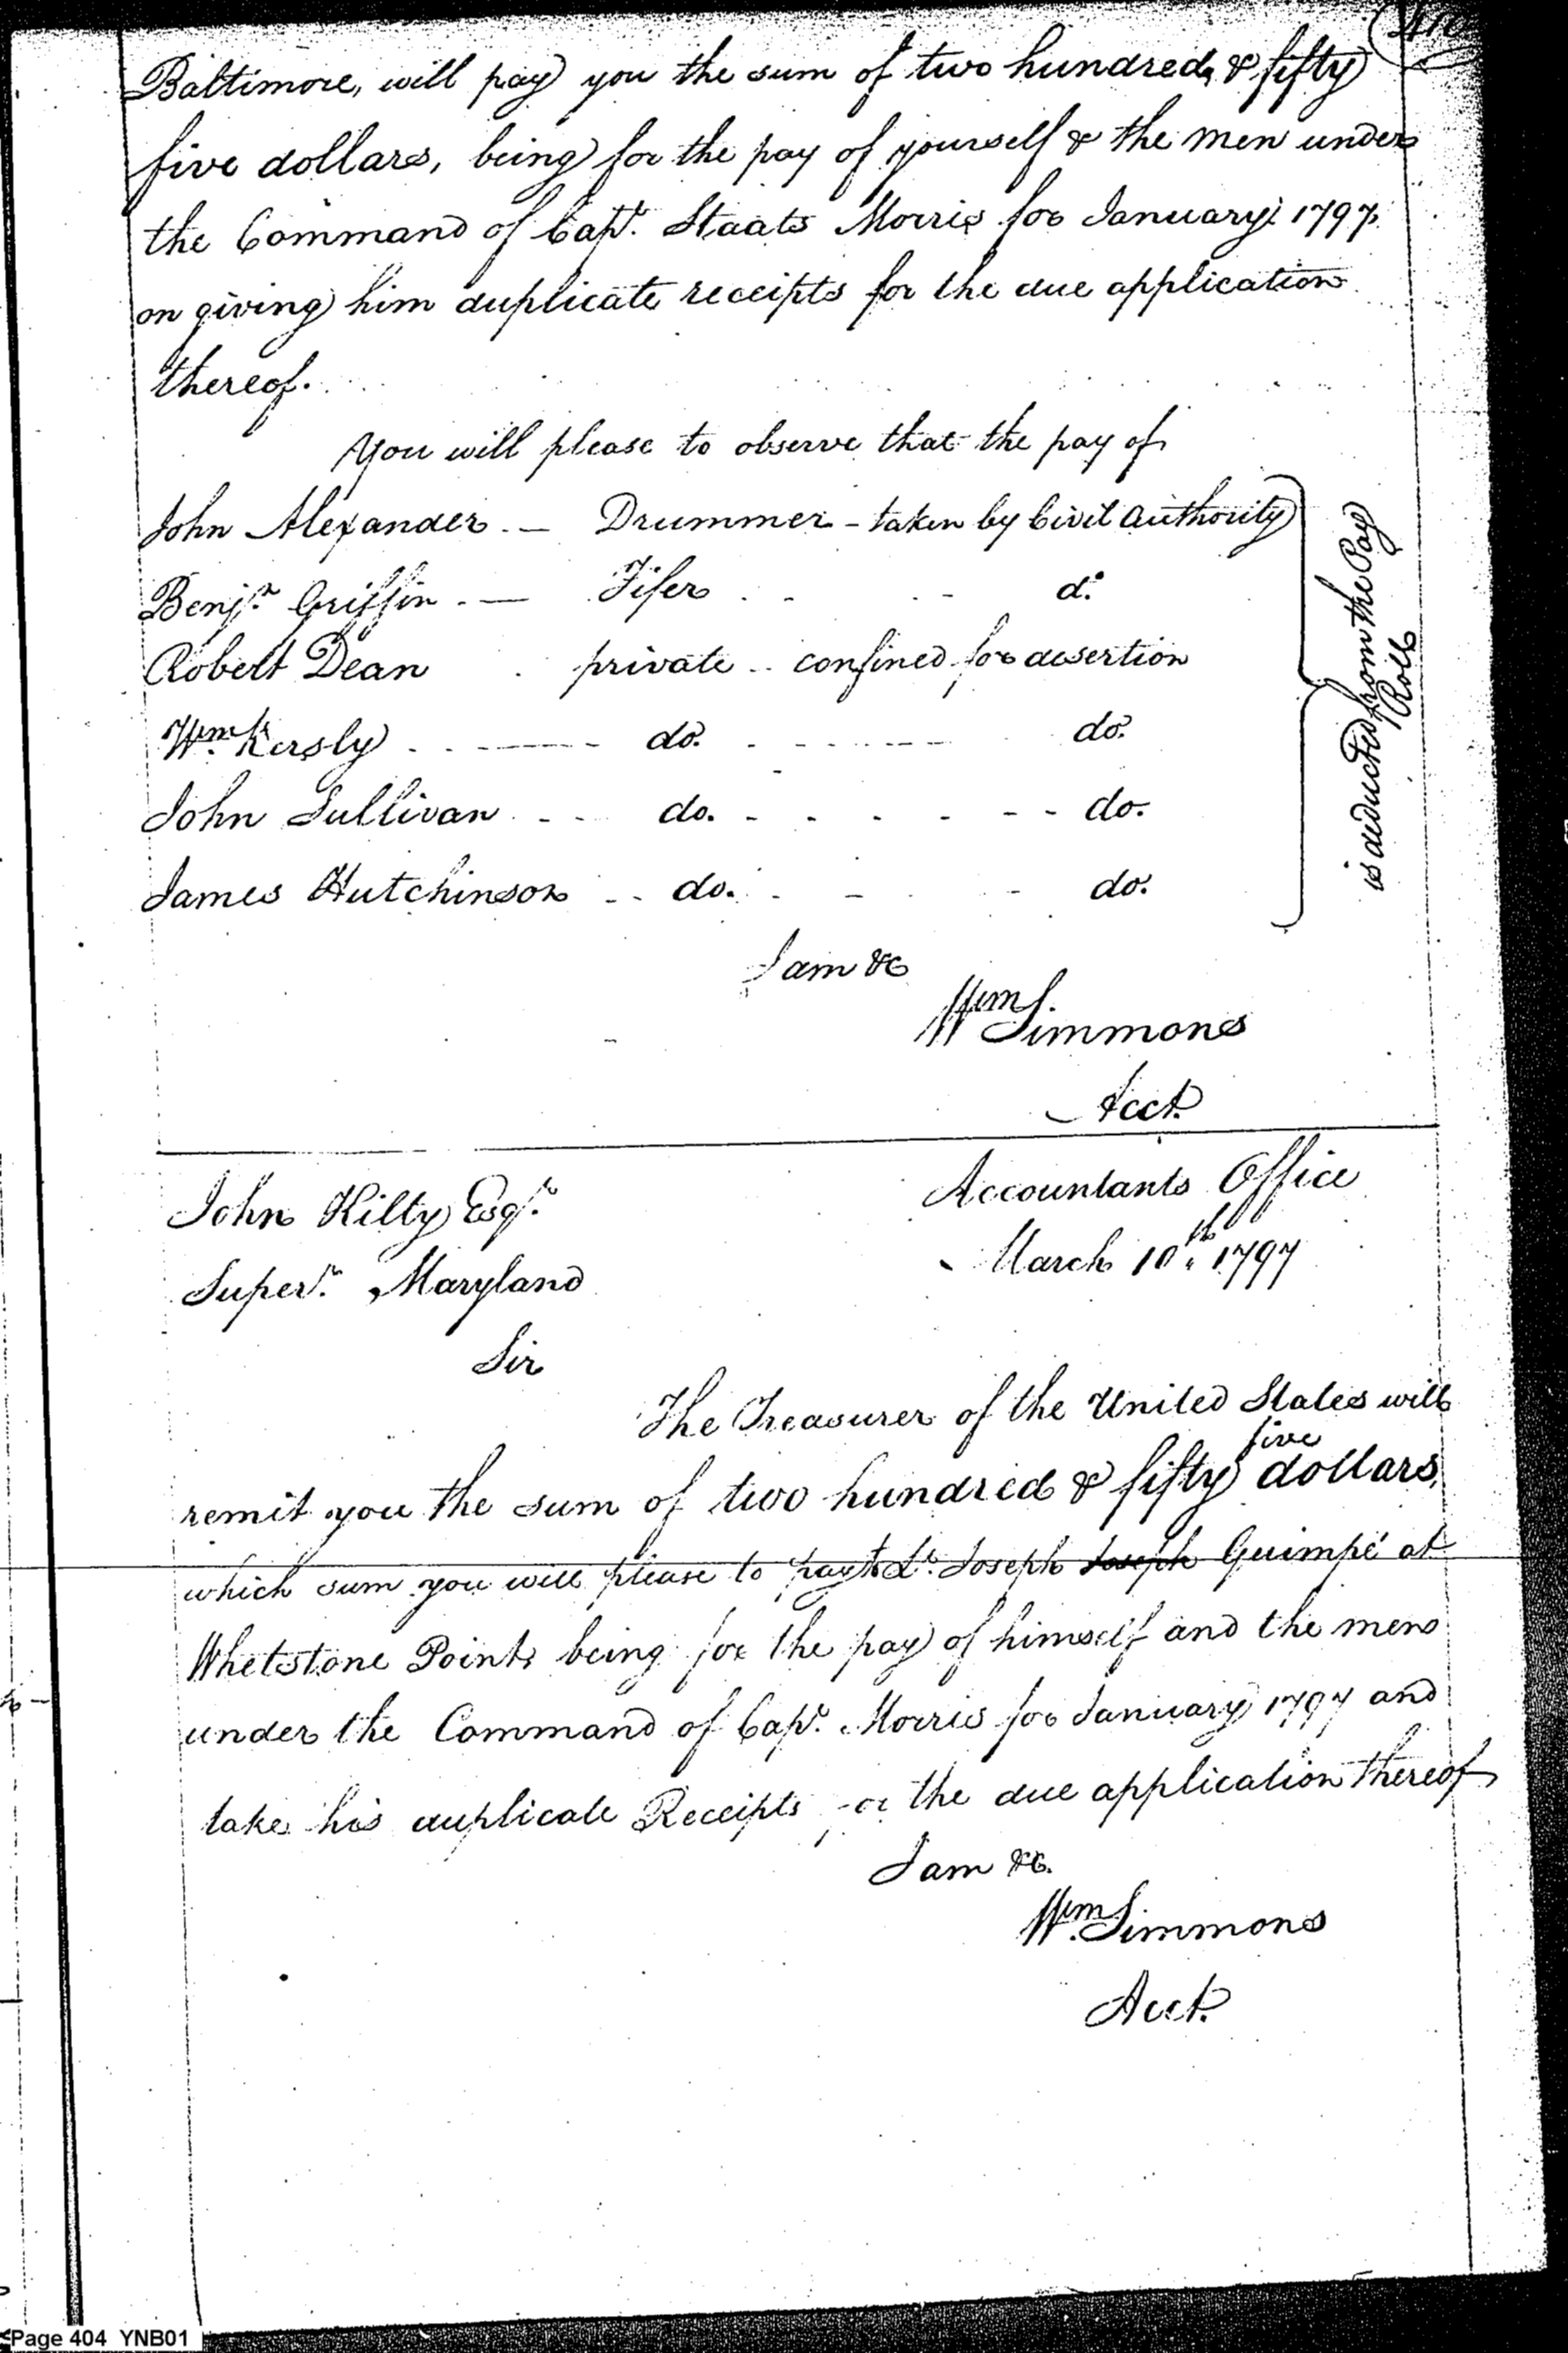 Baltimore, will pay you the sum of two hundred & fifty
five dollars, being for the pay of yourself & the men under
the Command of Capt. Staats Morris for January 1797.
on giving him duplicate receipts for the due application
thereof.
You will please to observe that the pay of
John Alexander - Drummer - taken by Civil Authority
Benjn. Griffin - Fifer do.
Robert Dean private confined for desertion
Wm. Kersly do. do.
John Sullivan do. do.
James Hutchinson do. do.
is deducted from the Pay
Roll
I am &c
Wm Simmons
Acct.
John Kilty Esqr. Accountants Office
Superr. Maryland March 10th. 1797
Sir
The Treasurer of the United States will
remit you the sum of two hundred & fifty five dollars,
which sum you will please to pay to Lt. Joseph Joseph Guimpé at
Whetstone Point, being for the pay of himself and the men
under the Command of Capt. Morris for January 1797 and
take his duplicate Receipts for the due application thereof
I am &c.
Wm. Simmons
Acct.
Page 404 YNB01